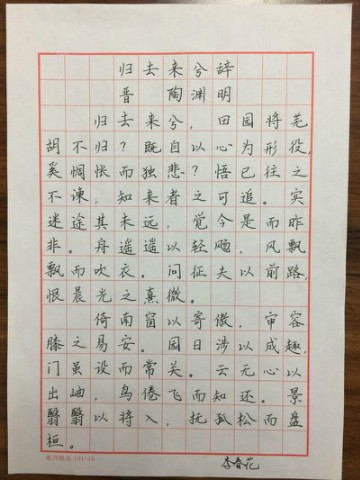 归去来兮辞
晋 陶渊明
归去来兮，田园将芜，
胡不归？既自以心为形役，
奚惆怅而独悲？悟已往之
不谏，知来者之可追。实
迷途其未远，觉今是而昨
非。舟遥遥以轻飏，风飘
飘而吹衣。问征夫以前路，
恨晨光之熹微。
倚南窗以寄傲，审容
膝之易安。园日涉以成趣，
门虽设而常关。云无心以
出岫，鸟倦飞而知还。景
翳翳以将入，抚孤松而盘
桓。
李春花